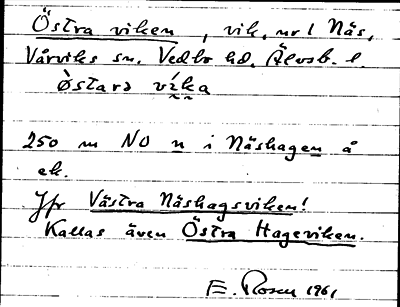 Östra viken, vik, nr 1 Näs,
Vårviks sn. Vedbo hd. Älvsb. l.
òstarə víka
250 m NO n i Näshagen å
ek.
Jfr Västra Näshagsviken!
Kallas även Östra Hageviken.
E. Rosen 1961